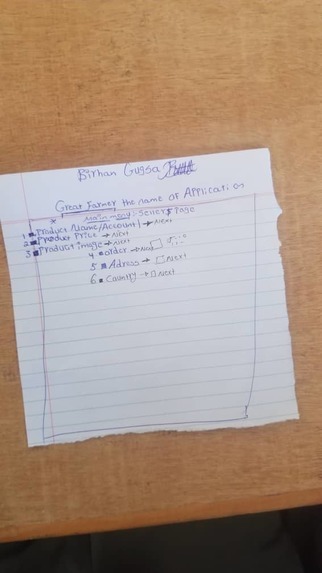 Birhan Gugsa
Great Farmer the name of Application
* Main menu: Seller's Page
1 Product Name/Account → Next
2 Product Price → Next
3 Product image → Next
4 order → Next
5 Adress → Next
6 Country → Next